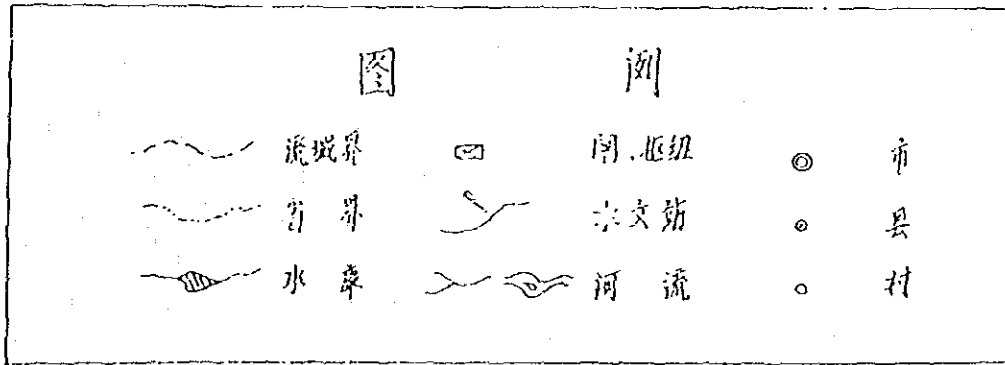 图 例
流域界 闸、枢纽 市
省界 水文站 县
水库 河流 村